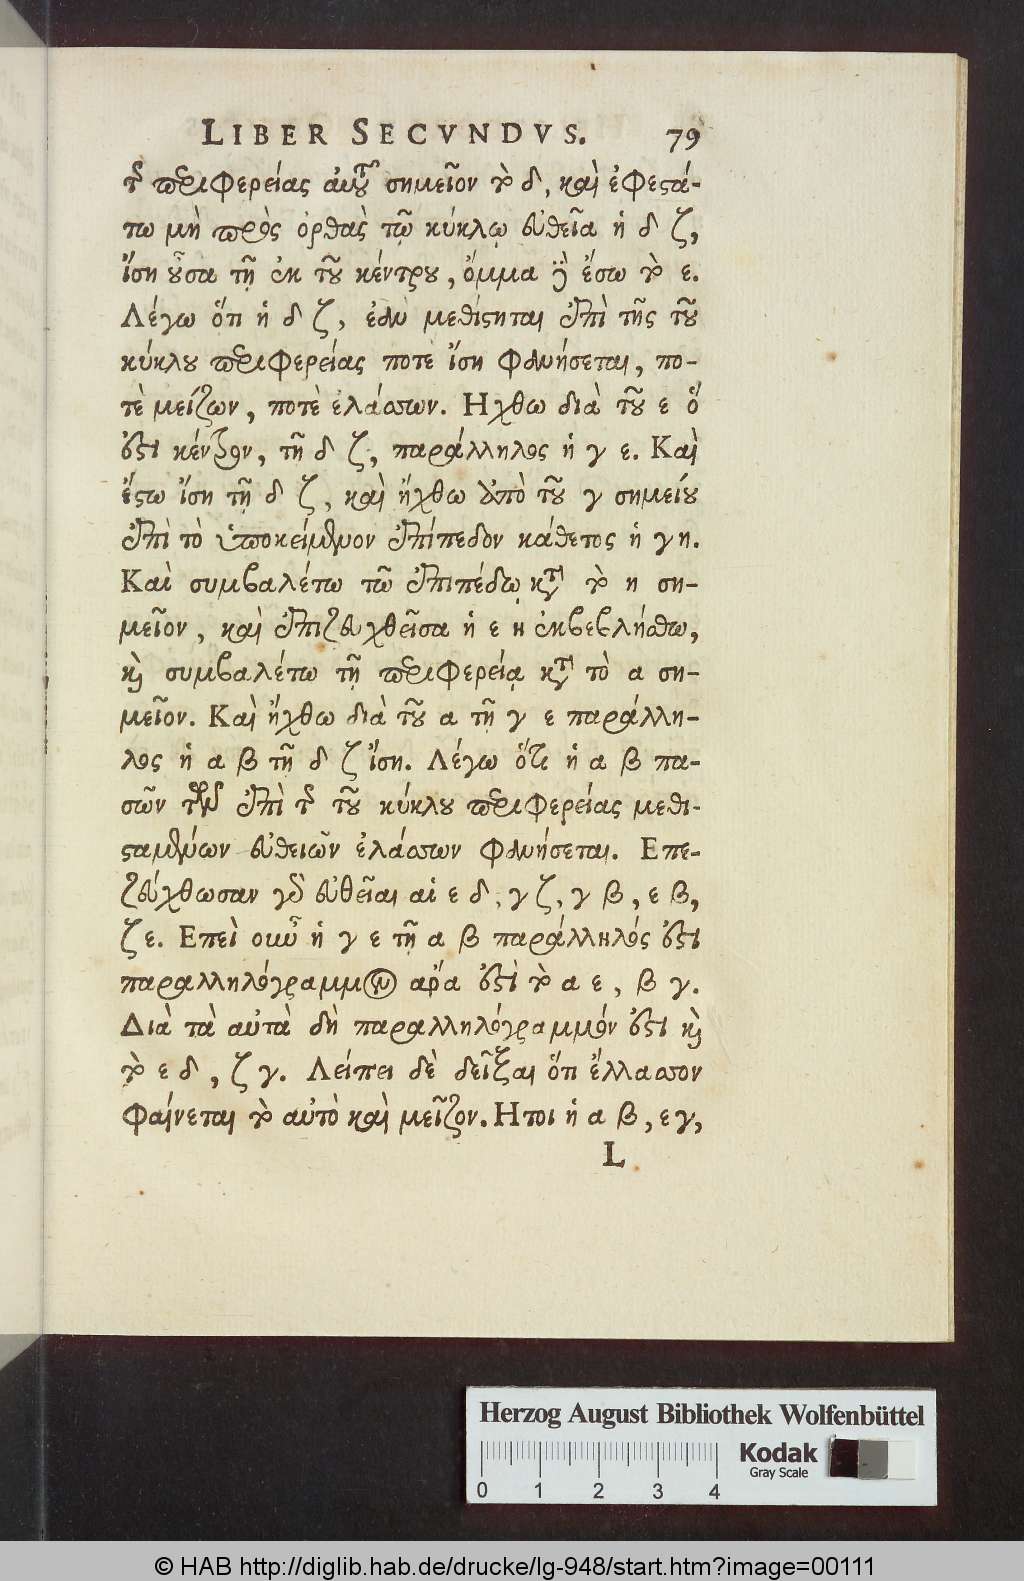 LIBER SECVNDVS. 79
τῆς περιφερείας αὐτοῦ σημεῖον τὸ δ, καὶ ἐφεστά-
τω μὴ πρὸς ὀρθὰς τῷ κύκλῳ εὐθεῖα ἡ δ ζ,
ἴση οὖσα τῇ ἐκ τοῦ κέντρου, ὄμμα δὲ ἔστω τὸ ε.
Λέγω ὅτι ἡ δ ζ, ἐὰν μεθίστηται ἐπὶ τῆς τοῦ
κύκλου περιφερείας ποτε ἴση φανήσεται, πο-
τὲ μείζων, ποτὲ ἐλάσσων. Ηχθω διὰ τοῦ ε ὅ
ἐστι κέντρον, τῇ δ ζ, παράλληλος ἡ γ ε. Καὶ
ἔστω ἴση τῇ δ ζ, καὶ ἤχθω ἀπὸ τοῦ γ σημείου
ἐπὶ τὸ ὑποκείμενον ἐπίπεδον κάθετος ἡ γ η.
Καὶ συμβαλέτω τῷ ἐπιπέδῳ κατὰ τὸ η ση-
μεῖον, καὶ ἐπιζευχθεῖσα ἡ ε η ἐκβεβλήσθω,
καὶ συμβαλέτω τῇ περιφερείᾳ κατὰ τὸ α ση-
μεῖον. Καὶ ἤχθω διὰ τοῦ α τῇ γ ε παράλλη-
λος ἡ α β τῇ δ ζ ἴση. Λέγω ὅτι ἡ α β πα-
σῶν τῶν ἐπὶ τῆς τοῦ κύκλου περιφερείας μεθι-
σταμένων εὐθειῶν ἐλάσσων φανήσεται. Επε-
ζεύχθωσαν γὰρ εὐθεῖαι αἱ ε δ, γ ζ, γ β, ε β,
ζ ε. Επεὶ οὖν ἡ γ ε τῇ α β παράλληλός ἐστι
παραλληλόγραμμον ἄρα ἐστὶ τὸ α ε, β γ.
Διὰ τὰ αὐτὰ δὴ παραλληλόγραμμόν ἐστι καὶ
τὸ ε δ, ζ γ. Λείπει δὲ δεῖξαι ὅτι ἔλλασσον
φαίνεται τὸ αὐτὸ καὶ μεῖζον. Ητοι ἡ α β, ε γ,
L
Herzog August Bibliothek Wolfenbüttel
Kodak
Gray Scale
0 1 2 3 4
© HAB http://diglib.hab.de/drucke/lg-948/start.htm?image=00111